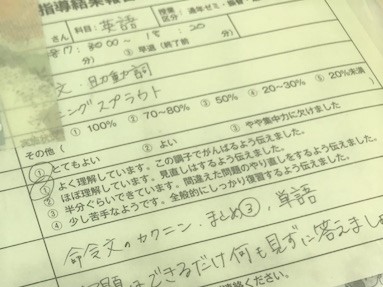 指導結果報
さん 科目: 英語 授業区分: 通年ゼミ・講習・
③ 早退 (終了前 分)
文. 助動詞
ニングスプラウト
① 100% ② 70~80% ③ 50% ④ 20~30% ⑤ 20%未満
その他 (
① とてもよい ② よい ③ やや集中力に欠けました
① よく理解しています。この調子でがんばるよう伝えました。
② ほぼ理解しています。見直しはするよう伝えました。
③ 半分ぐらいできています。間違えた問題のやり直しをするよう伝えました。
④ 少し苦手なようです。全般的にしっかり復習するよう伝えました。
命令文のカクニン. まとめ③. 単語
はできるだけ何も見ずに答えまし
ください。